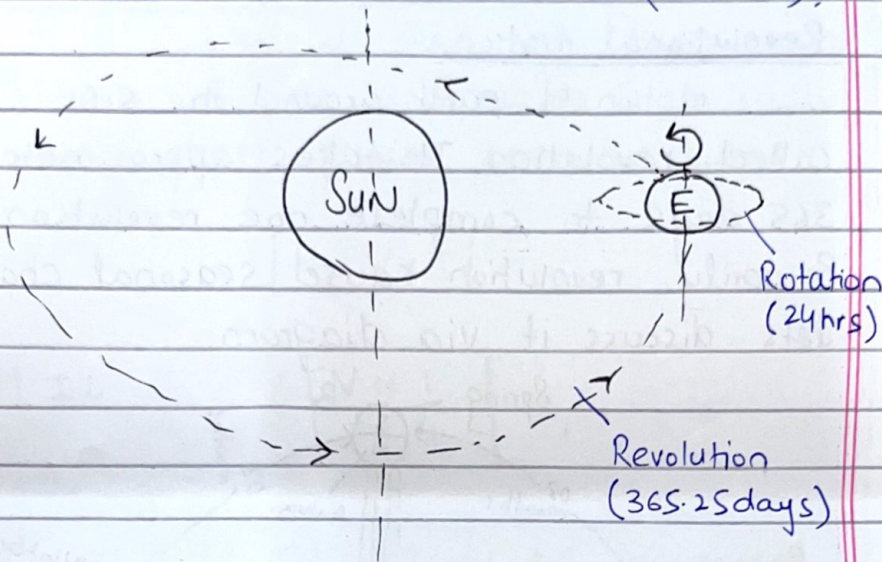 SUN
E
Rotation
(24hrs)
Revolution
(365.25days)